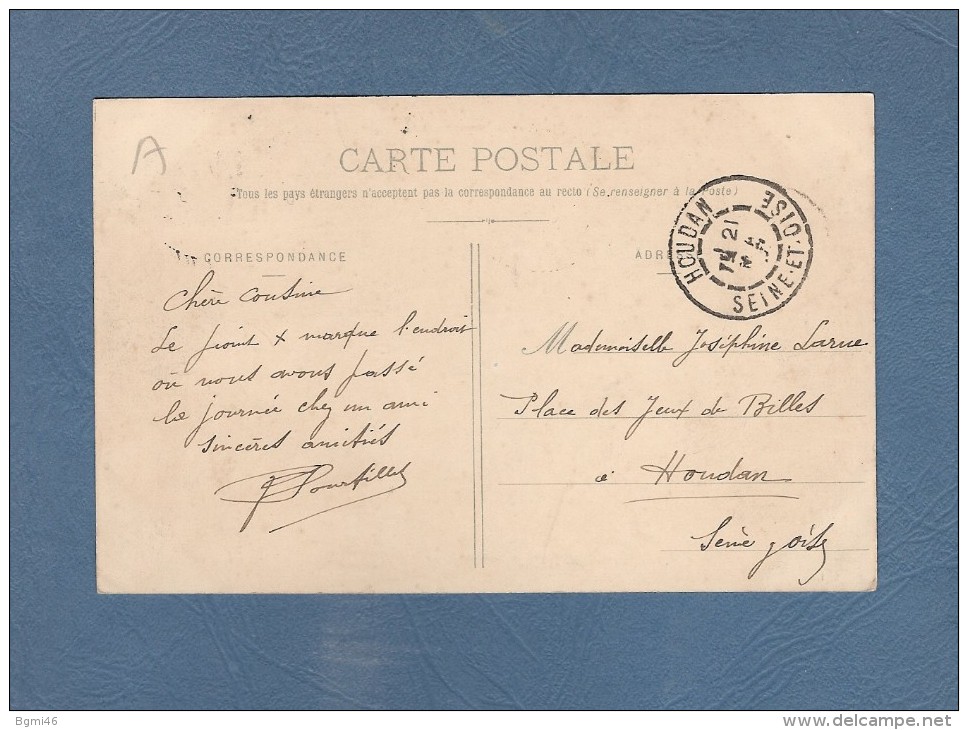 A
CARTE POSTALE
Tous les pays étrangers n'acceptent pas la correspondance au recto (Se renseigner à la Poste)
CORRESPONDANCE
Chère Cousine
Le point x marque l'endroit
où nous avons passé
la journée chez un ami
Sincères amitiés
ADRESSE
HOUDAN
21
SEINE-ET-OISE
Mademoiselle Joséphine Larue
Place des Jeux de Billes
à Houdan
Seine
Bgmi46
www.delcampe.net